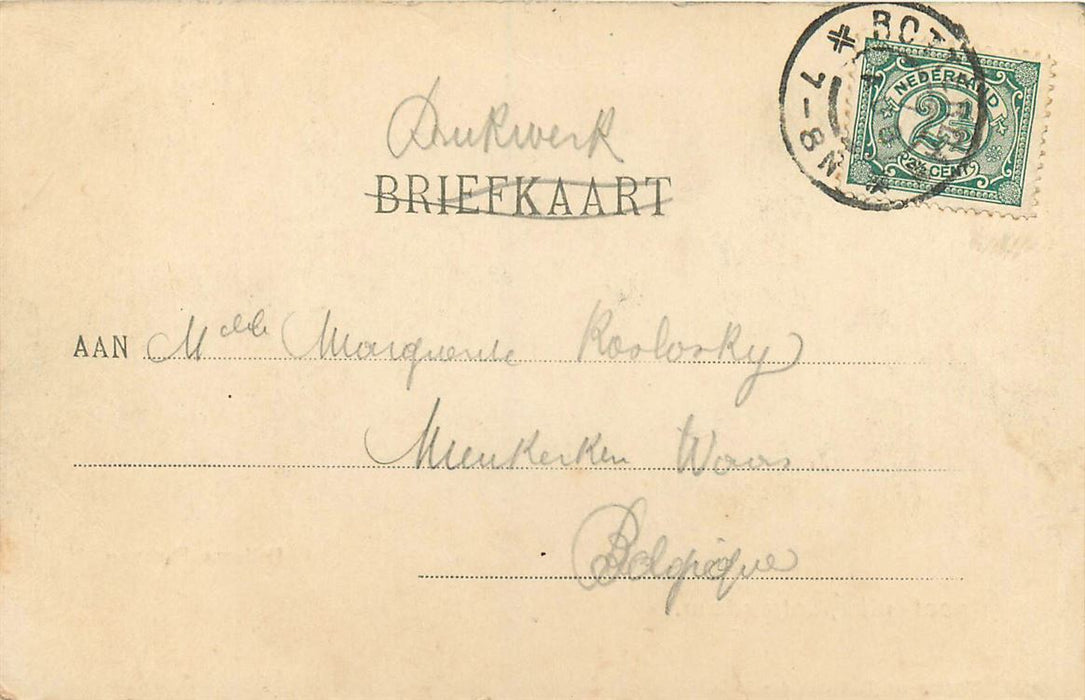 Drukwerk
BRIEFKAART
AAN Melle Marguerite Koslosky
Nieukerken Waas
Belgique
NEDERLAND
2 1/2
2½ CENT
7-8 N